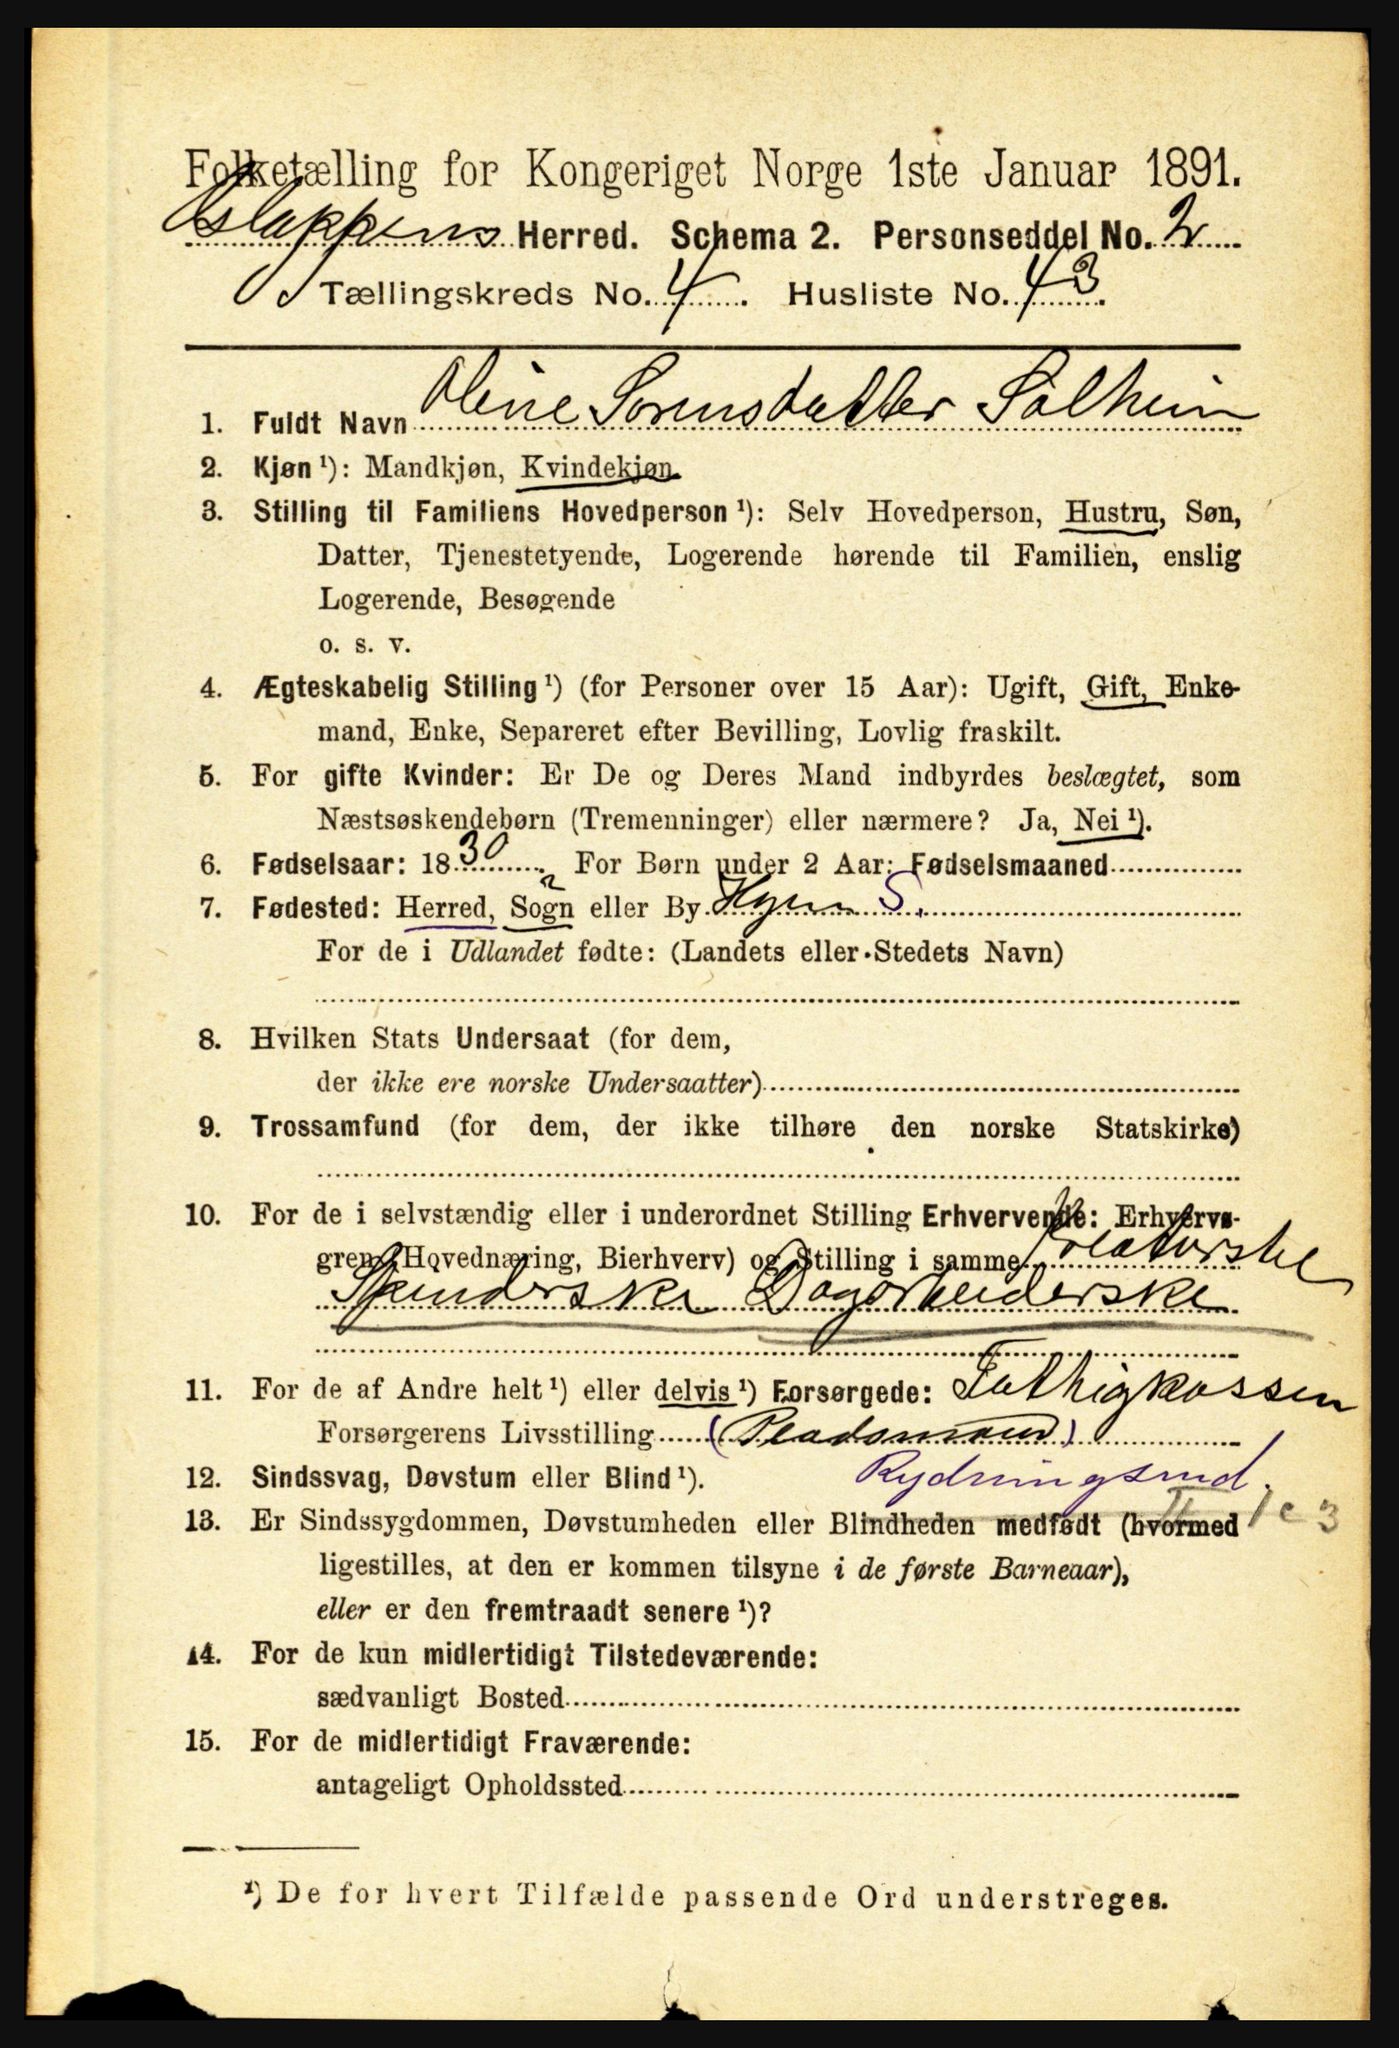 Folketælling for Kongeriget Norge 1ste Januar 1891.
Herred. Schema 2. Personseddel No. 2
Tællingskreds No. 4. Husliste No. 43.
1. Fuldt Navn Oline Sørensdatter Solheim
2. Kjøn ¹): Mandkjøn, Kvindekjøn
3. Stilling til Familiens Hovedperson ¹): Selv Hovedperson, Hustru, Søn,
Datter, Tjenestetyende, Logerende hørende til Familien, enslig
Logerende, Besøgende
o. s. v.
4. Ægteskabelig Stilling ¹) (for Personer over 15 Aar): Ugift, Gift, Enke-
mand, Enke, Separeret efter Bevilling, Lovlig fraskilt.
5. For gifte Kvinder: Er De og Deres Mand indbyrdes beslægtet, som
Næstsøskendebørn (Tremenninger) eller nærmere? Ja, Nei ¹).
6. Fødselsaar: 1830. For Børn under 2 Aar: Fødselsmaaned
7. Fødested: Herred, Sogn eller By Hyen S.
For de i Udlandet fødte: (Landets eller Stedets Navn)
8. Hvilken Stats Undersaat (for dem,
der ikke ere norske Undersaatter)
9. Trossamfund (for dem, der ikke tilhøre den norske Statskirke)
10. For de i selvstændig eller i underordnet Stilling Erhvervende: Erhvervs-
gren (Hovednæring, Bierhverv) og Stilling i samme Kreaturstel
Spinderske Dagarbeiderske
11. For de af Andre helt ¹) eller delvis ¹) Forsørgede: Fattigkassen
Forsørgerens Livsstilling (Pladsmand)
12. Sindssvag, Døvstum eller Blind ¹). Rydningsmd.
13. Er Sindssygdommen, Døvstumheden eller Blindheden medfødt (hvormed
ligestilles, at den er kommen tilsyne i de første Barneaar),
eller er den fremtraadt senere ¹)?
14. For de kun midlertidigt Tilstedeværende:
sædvanligt Bosted
15. For de midlertidigt Fraværende:
antageligt Opholdssted
¹) De for hvert Tilfælde passende Ord understreges.